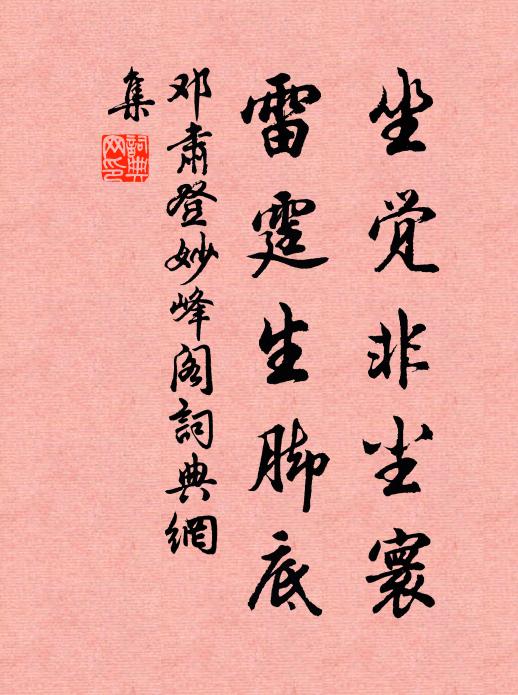 坐觉非尘寰
雷霆生脚底
邓肃登妙峰阁詞典網
集
詞典
网印